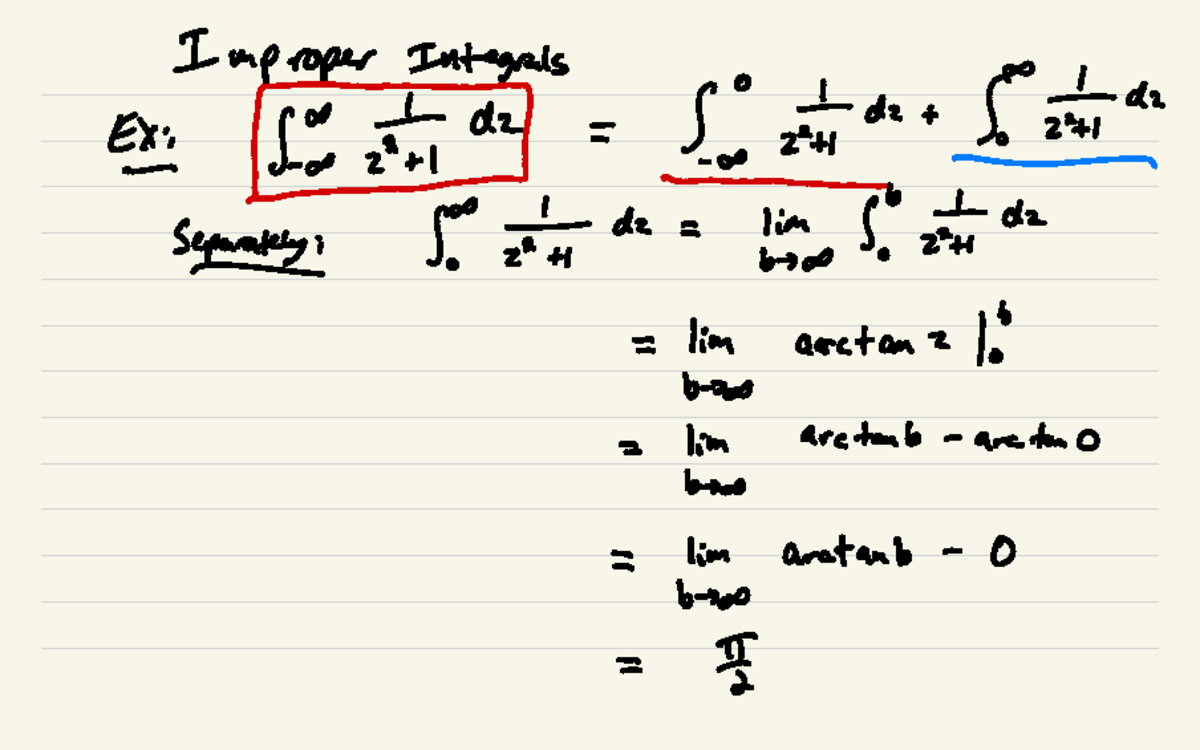 Improper Integrals
Ex: ∫_{-∞}^{∞} 1/(z²+1) dz = ∫_{-∞}^{0} 1/(z²+1) dz + ∫_{0}^{∞} 1/(z²+1) dz
Separately: ∫_{0}^{∞} 1/(z²+1) dz = lim_{b→∞} ∫_{0}^{b} 1/(z²+1) dz
= lim_{b→∞} arctan z |_{0}^{b}
= lim_{b→∞} arctan b - arctan 0
= lim_{b→∞} arctan b - 0
= π/2